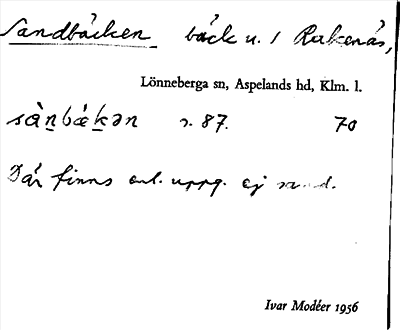 Sandbäcken bäck u. / Ruskenäs,
Lönneberga sn, Aspelands hd, Klm. l.
sàn̲bæk̲ən s. 87. 70
Där finns enl. uppg. ej sand.
Ivar Modéer 1956